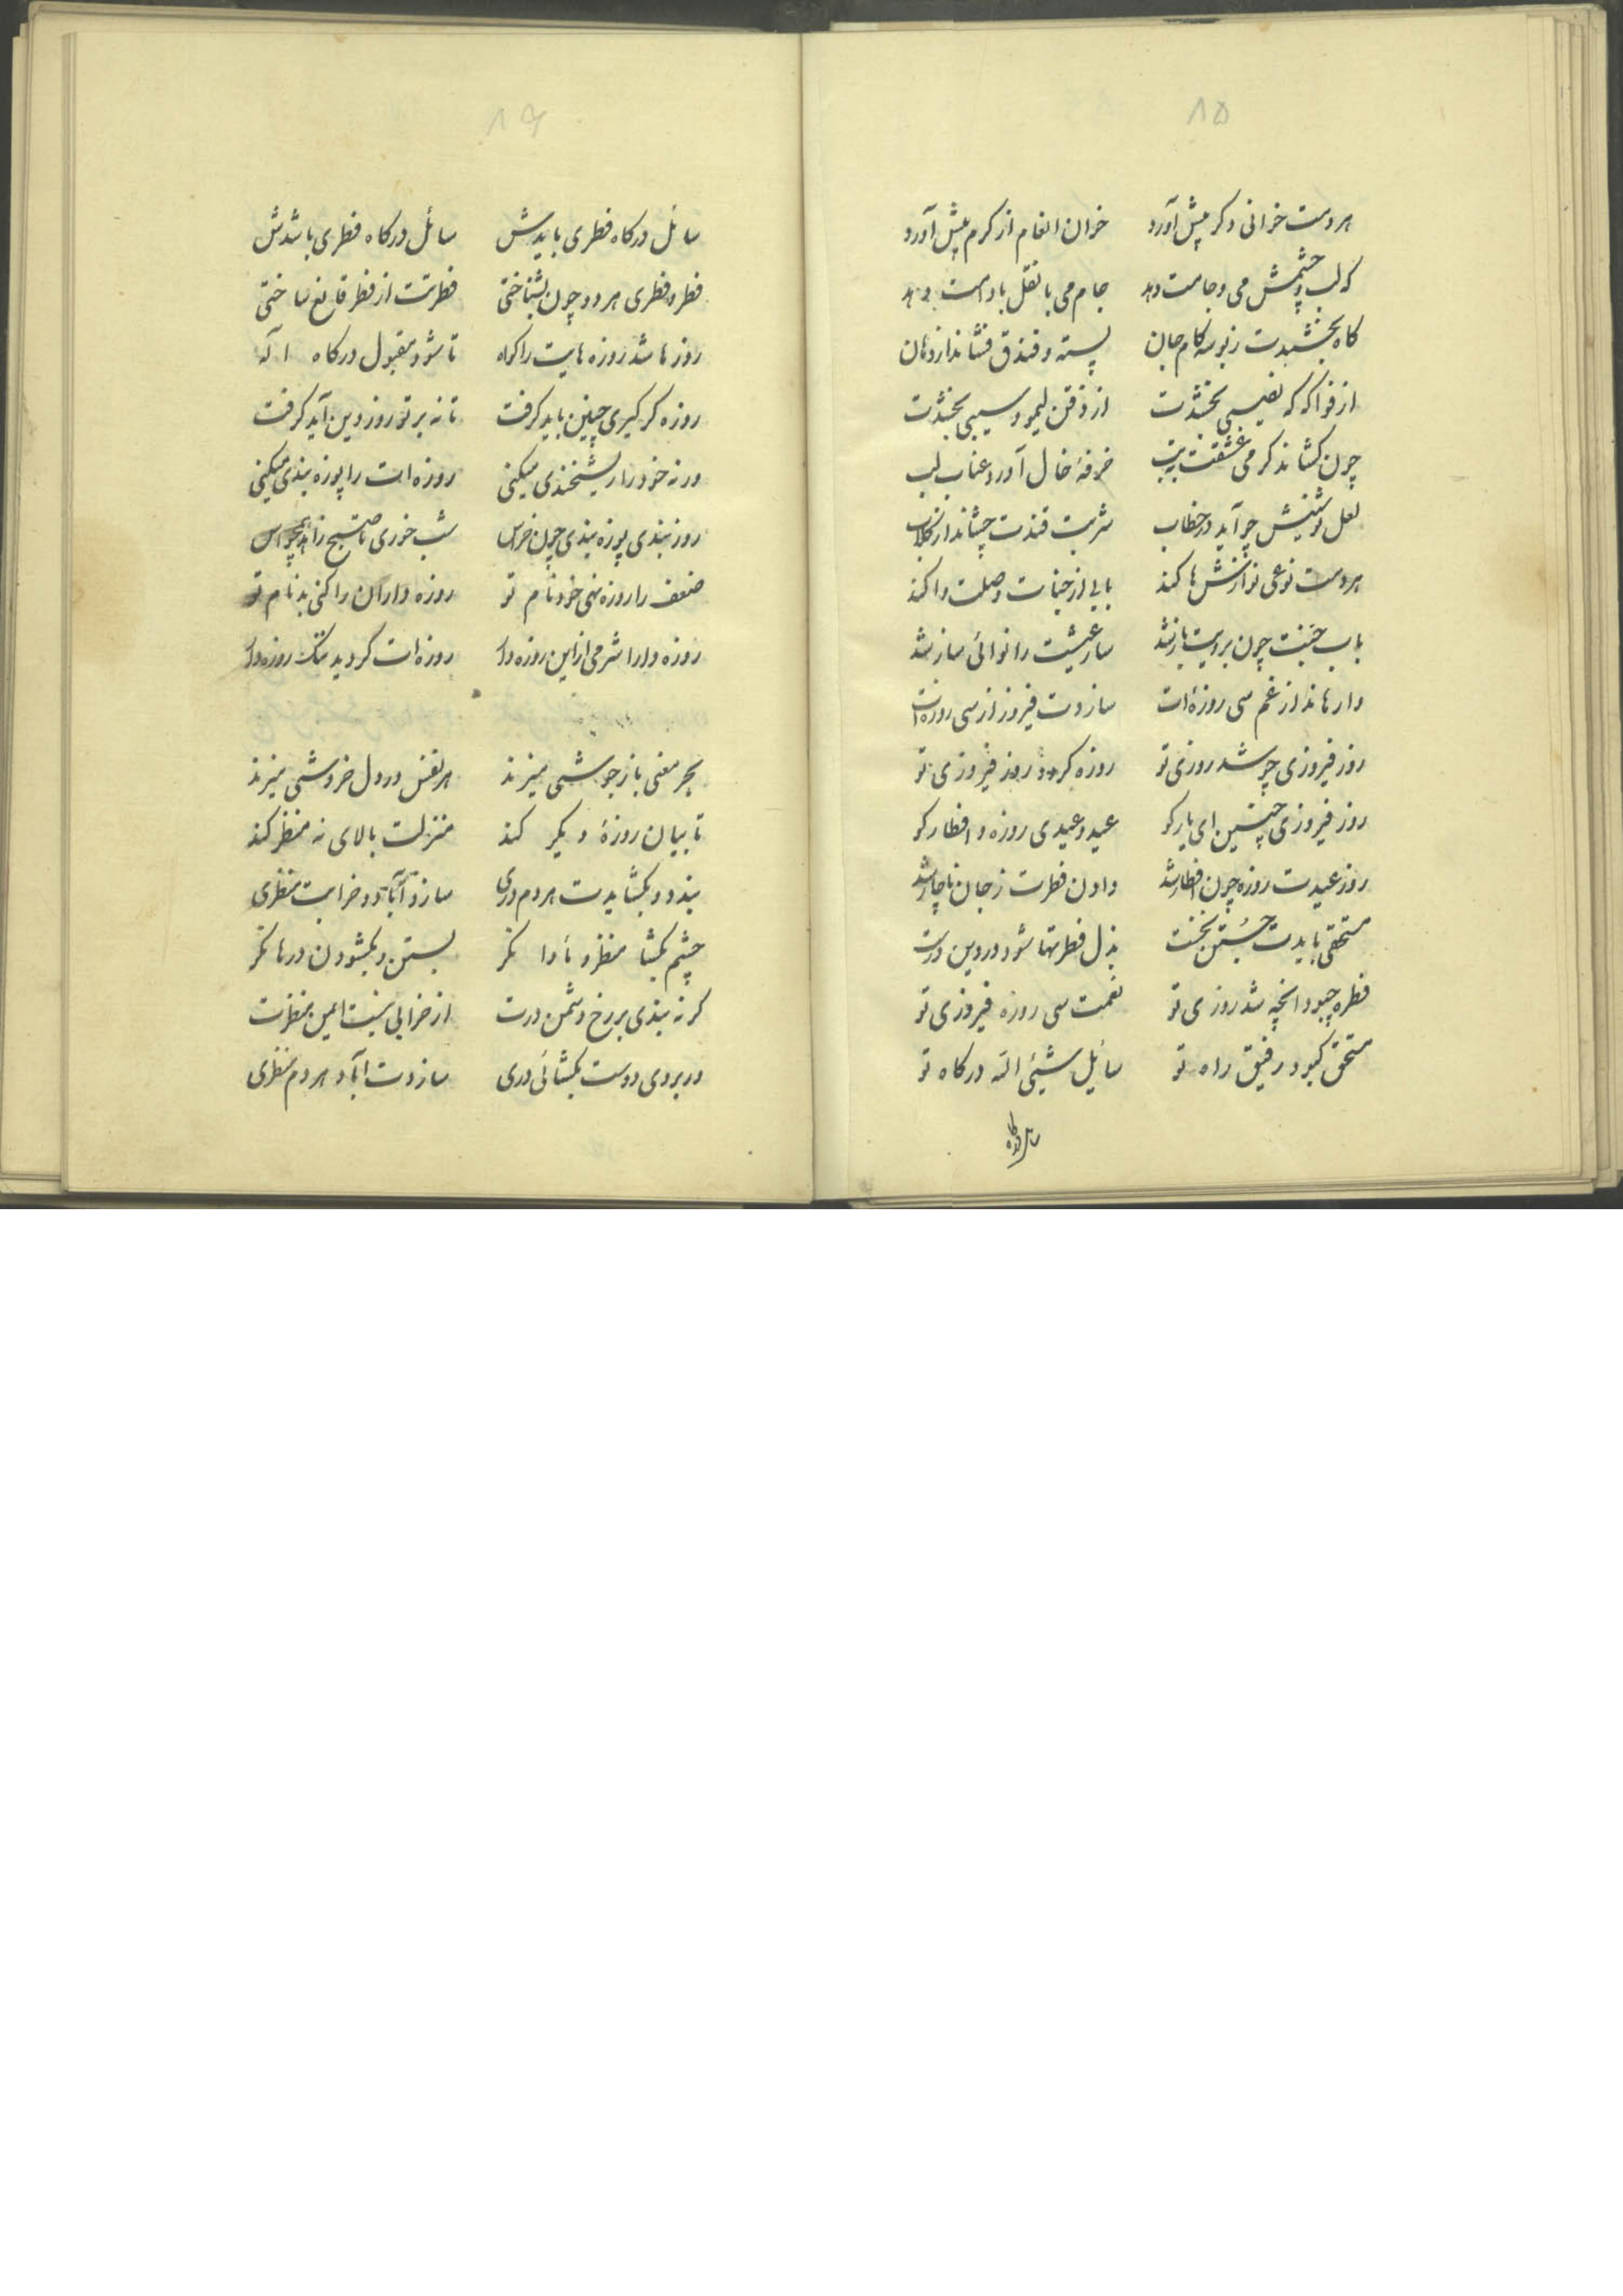 ۸۵
هردمت خوانی دکر پیش آورد خوان انعام از کرم پیش آورد
که لب و چشمش می و جامت دهد جام می با نقل بادامت دهد
کاه بخشدت ز بوسه کام جان پسته و فندق فشاند از دهان
از فواکه که نصیبی بخشدت از ذقن لیمو و سیبی بخشدت
چون کشاند کرمی عشقت بتب خرفهٔ خال آورد عناب لب
لعل نوشینش چو آید در خطاب شربت قندت چشاند از کلاب
هردمت نوعی نوازشها کند بابی از جنات وصلت وا کند
باب جنت چون برویت باز شد ساز عیشت را نوائی ساز شد
وارهاند از غم سی روزهٔ ات سازدت فیروز از سی روزه ات
روز فیروزی چو شد روزی تو روزه کردد روز فیروزی تو
روز فیروزی چنین ای یار کو عید و عیدی روزه و افطار کو
روز عیدت روزه چون افطار شد دادن فطرت ز جان ناچار شد
مستحقی بایدت جستن نخست بذل فطرتها شود در دین درست
فطره چبود انچه شد روزی تو نعمت سی روزه فیروزی تو
مستحق کبود رفیق راه تو سائیل شیئی الله درکاه تو
سائل درکاه
۸۶
سائل درکاه فطری بایدش سائل درکاه فطری باشدش
فطر و فطری هر دو چون بشناختی فطرتت از فطر قانع ساختی
روزها شد روزه هایت را کواه تا شود مقبول درکاه اله
روزه کر کیری چنین باید کرفت تا نه بر تو روز دین آید کرفت
ورنه خود را ریشخندی میکنی روزه ات را پوزه بندی میکنی
روز بندی پوزه بندی چون خراس شب خوری تا صبح
ضعف را روزه نهی خود نام تو روزه داران را کنی بدنام تو
روزه دارا شرمی از این روزه دار روزه ات کردید ننک روزه دار
بحر معنی باز جوشی میزند هر نفس در دل خروشی میزند
تا بیان روزهٔ دیکر کند منزلت بالای نه منظر کند
بندد و بکشایدت هردم دری سازد آباد و خرابت منظری
چشم بکشا منظر و ناوا نکر بستن و بکشودن درها نکر
کر نه بندی بر رخ دشمن درت از خرابی نیست ایمن منظرت
در بروی دوست بکشائی دری سازدت آباد هردم منظری